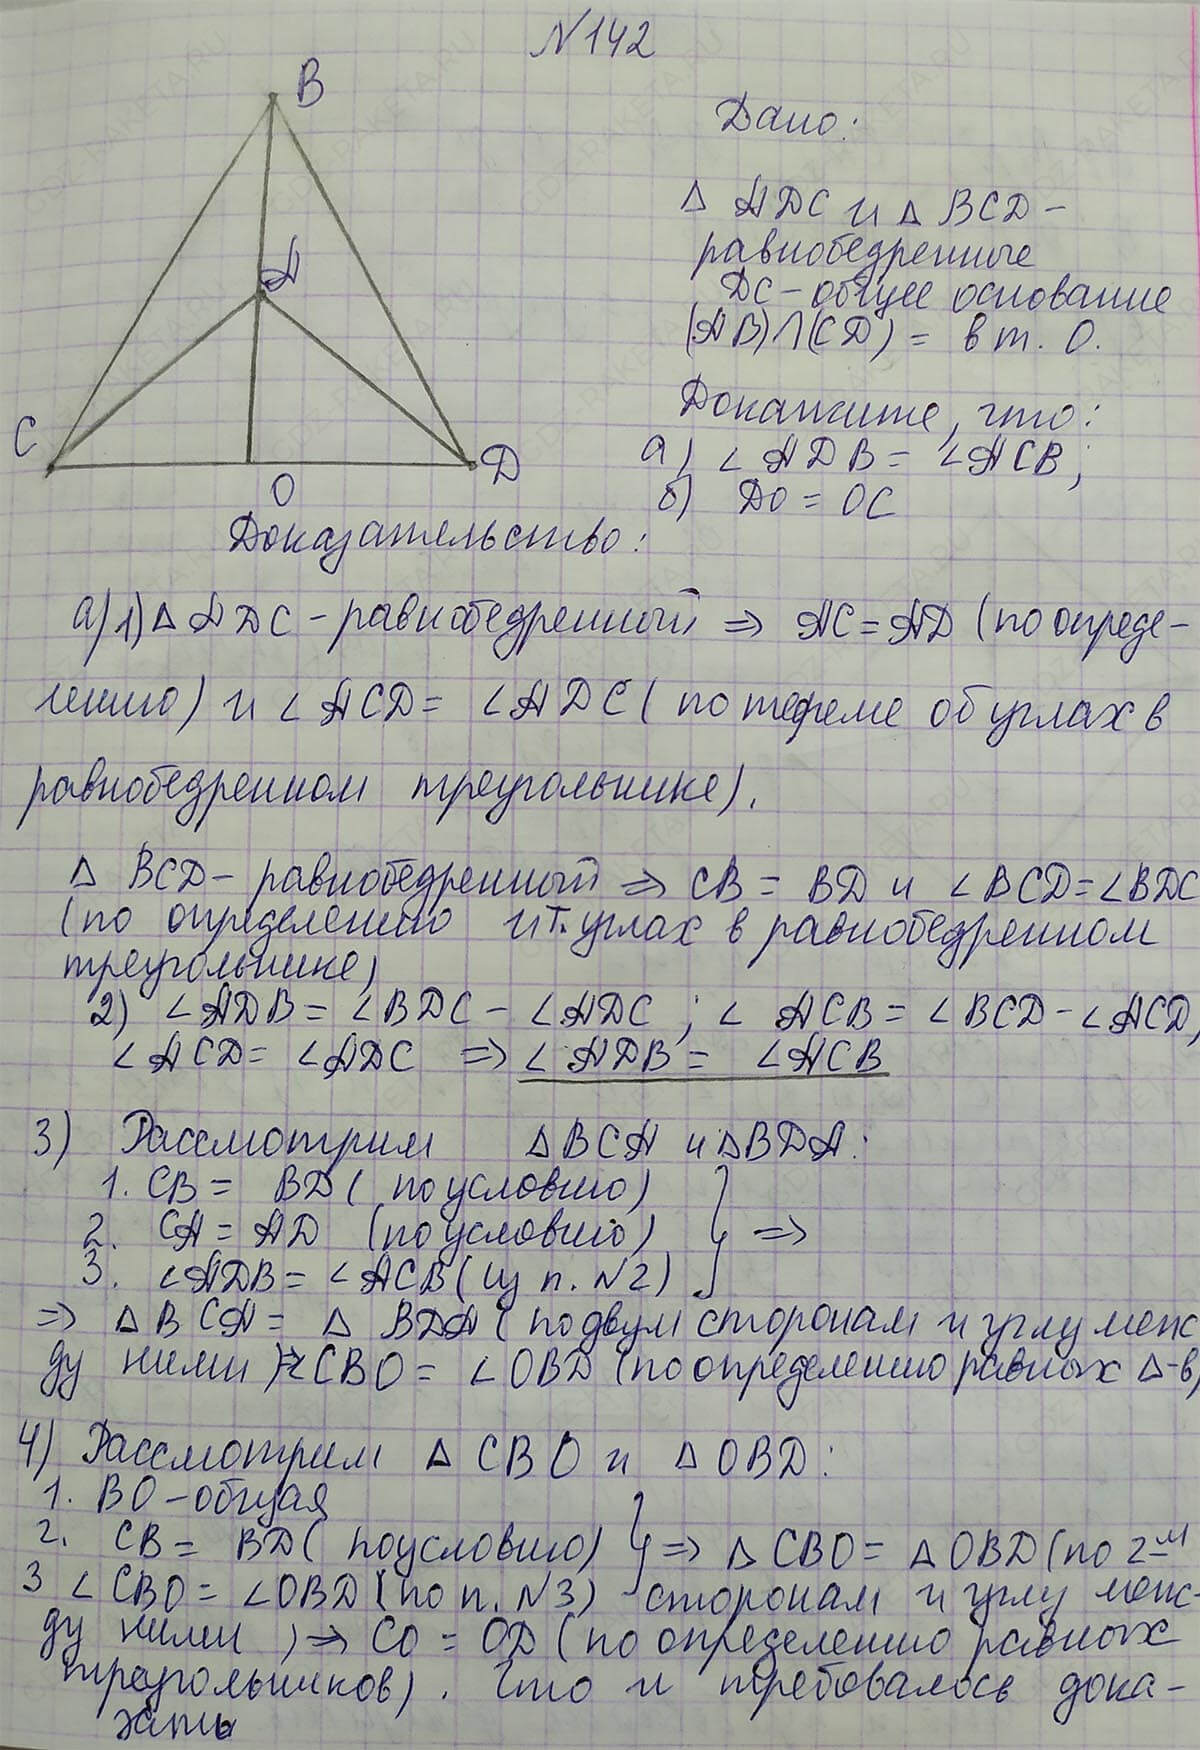 №142
B
A
C
D
O
Дано:
△ ADC и △ BCD -
равнобедренные
DC - общее основание
(AB)∩(CD) = в т. O.
Докажите, что:
а) ∠ADB = ∠ACB;
б) DO = OC
Доказательство:
а) 1) △ ADC - равнобедренный => AC = AD (по опреде-
лению) и ∠ACD = ∠ADC (по теореме об углах в
равнобедренном треугольнике).
△ BCD - равнобедренный => CB = BD и ∠BCD = ∠BDC
(по определению и т. углах в равнобедренном
треугольнике)
2) ∠ADB = ∠BDC - ∠ADC ; ∠ACB = ∠BCD - ∠ACD,
∠ACD = ∠ADC => ∠ADB = ∠ACB
3) Рассмотрим △BCA и △BDA:
1. CB = BD (по условию)
2. CA = AD (по условию) } =>
3. ∠ADB = ∠ACB (из п. №2)
=> △ BCA = △ BDA (по двум сторонам и углу меж-
ду ними) => ∠CBO = ∠OBD (по определению равных △-в)
4) Рассмотрим △ CBO и △ OBD:
1. BO - общая
2. CB = BD (по условию) } => △ CBO = △ OBD (по 2-м
3 ∠CBO = ∠OBD (по п. №3) сторонам и углу меж-
ду ними) => CO = OD (по определению равных
треугольников). Что и требовалось дока-
зать